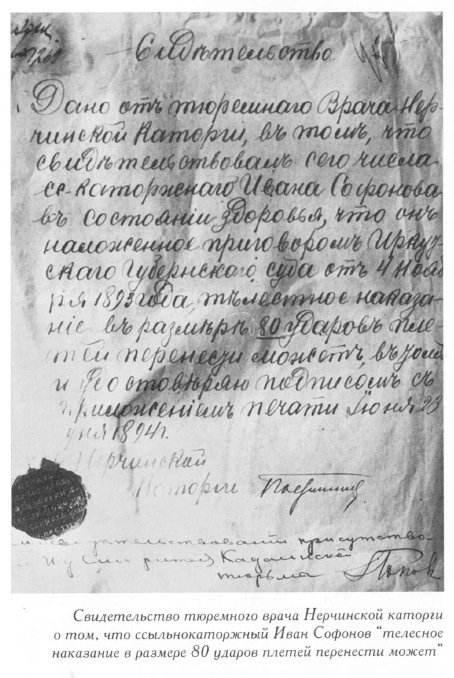 Свидѣтельство.
Дано отъ тюремнаго Врача Нер-
чинской Каторги, въ томъ, что
свидѣтельствовалъ сего числа
сс-каторжнаго Ивана Софонова
въ состояніи здоровья, что онъ
наложенное приговоромъ Иркут-
скаго Губернскаго суда отъ 4 Нояб
ря 1893 года, тѣлесное наказа-
ніе въ размѣрѣ 80 ударовъ пле-
тей перенести можетъ, въ чемъ
и удостовѣряю подписомъ съ
приложеніемъ печати Іюня 23
дня 1894 г.
Нерчинской
Каторги
свидѣтельствованіи присутство
Смотритель Кадаинской
тюрьмы Поповъ
Свидетельство тюремного врача Нерчинской каторги
о том, что ссыльнокаторжный Иван Софонов “телесное
наказание в размере 80 ударов плетей перенести может”